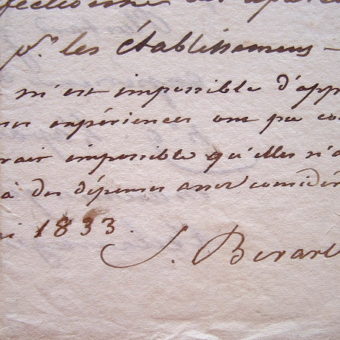 pr. les établissemens —
m'est impossible d'app
expériences ont pu co
rait impossible qu'elles n'a
à des dépenses assez considér
1833.
J. Berard